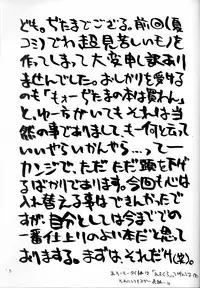 ども。ぢたまでござる。前回(夏
コミ)でわ超見苦しいモノを
作ってしまって大変申し訳あり
ませんでした。おしかりを受ける
のも「もォーぢたまの本は買わん」
と、ゆー方がいてもそれは当
然の事でありましてもー何と云って
いいやらいかんやら…って一
カンジで、ただただ頭を下げ
るばかりであります。今回も心は
入れ替える事はできまんたで
すが、自分としては今までの
一番仕上りのよい本だと思って
おりまする。まずは、それだけ(笑)。